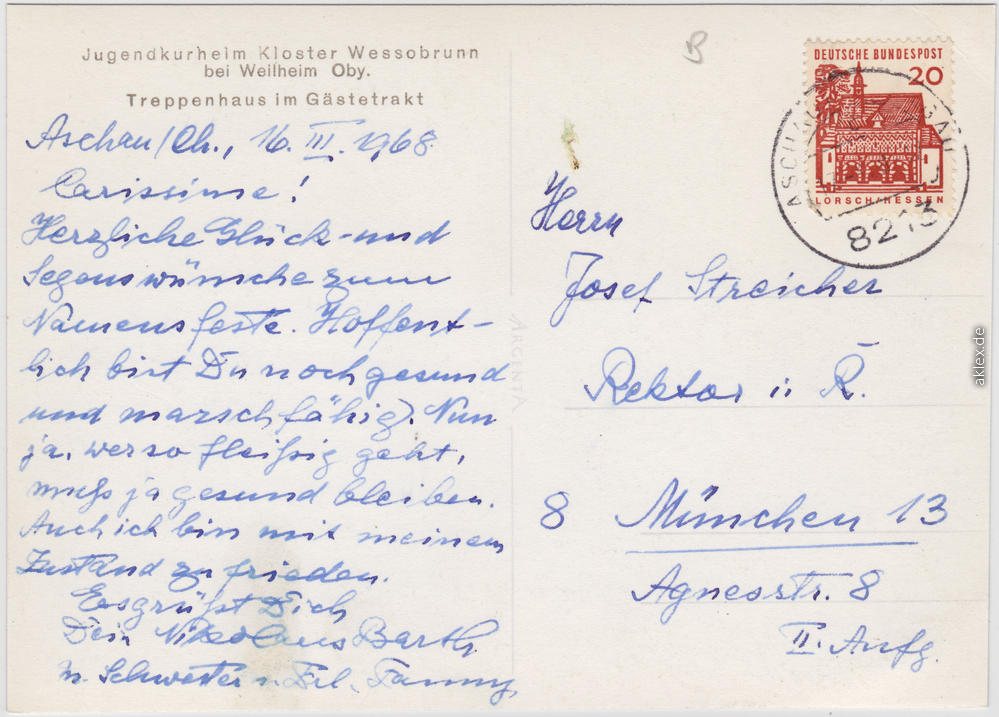 Jugendkurheim Kloster Wessobrunn
bei Weilheim Oby.
Treppenhaus im Gästetrakt
Aschau/Ch., 16. III. 1968
Carissime!
Herzliche Glück- und
Segenswünsche zum
Namensfeste. Hoffent-
lich bist Du noch gesund
und marschfähig. Nun
ja, wer so fleißig geht,
muß ja gesund bleiben.
Auch ich bin mit meinem
Zustand zufrieden.
Es grüßt Dich
Dein Nikolaus Barth
u. Schwester u. Frl. Fanny
ARGENTA
B
DEUTSCHE BUNDESPOST
20
LORSCH/HESSEN
ASCHAU
8213
Herrn
Josef Streicher
Rektor i. R.
8 München 13
Agnesstr. 8
II. Aufg.
aklex.de